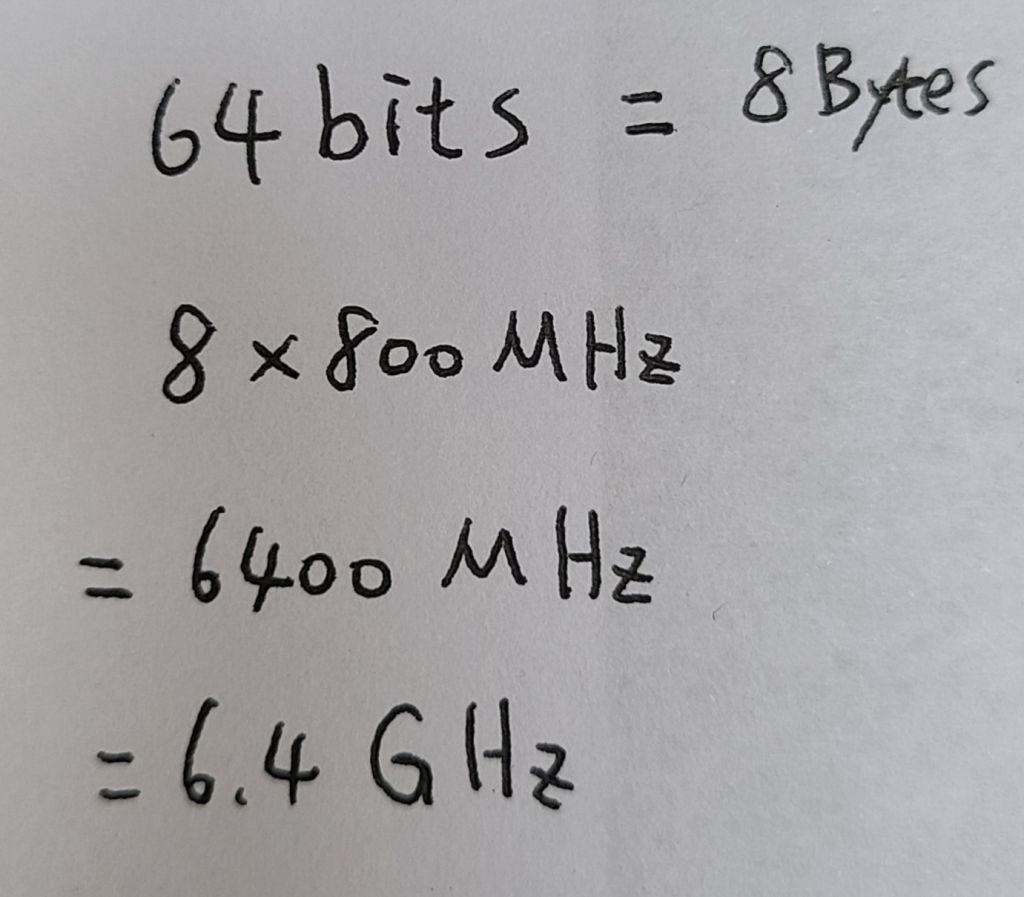 64 bits = 8 Bytes
8 × 800 MHz
= 6400 MHz
= 6.4 GHz